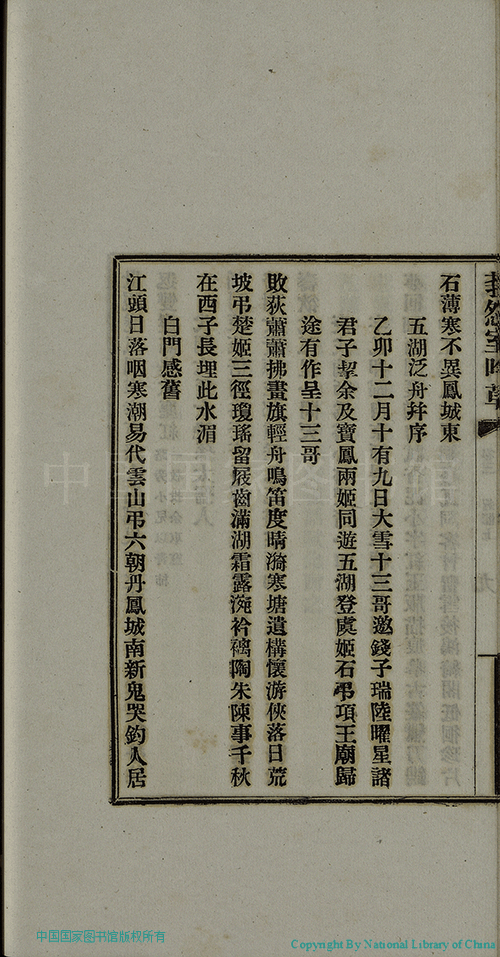 石薄寒不異鳳城東
五湖泛舟幷序
乙卯十二月十有九日大雪十三哥邀錢子瑞陸曜星諸
君子挈余及寶鳳兩姬同遊五湖登虞姬石弔項王廟歸
途有作呈十三哥
敗荻蕭蕭拂畫旗輕舟鳴笛度晴漪寒塘遺構懷游俠落日荒
坡弔楚姬三徑瓊瑤留屐齒滿湖霜露衿褵陶朱陳事千秋
在西子長埋此水湄
白門感舊
江頭日落咽寒潮易代雲山弔六朝丹鳳城南新鬼哭釣人居
中国国家图书馆版权所有
Copyright By National Library of China